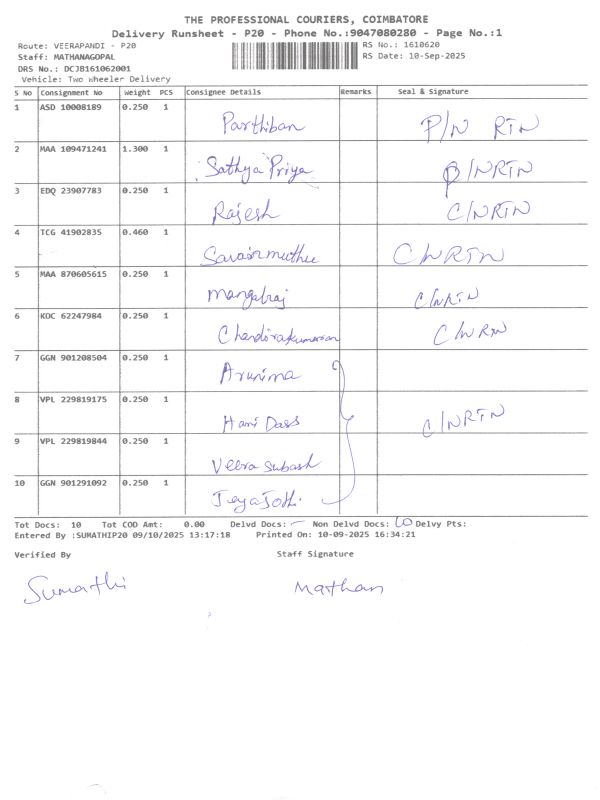 THE PROFESSIONAL COURIERS, COIMBATORE
Delivery Runsheet - P20 - Phone No.:9047080280 - Page No.:1
Route: VEERAPANDI - P20 RS No.: 1610620
Staff: MATHANAGOPAL RS Date: 10-Sep-2025
DRS No.: DCJB161062001
Vehicle: Two Wheeler Delivery
S No Consignment No Weight PCS Consignee Details Remarks Seal & Signature
1 ASD 10008189 0.250 1
Parthiban P/N RTN
2 MAA 109471241 1.300 1
Sathya Priya D/NRTN
3 EDQ 23907783 0.250 1
Rajesh C/NRTN
4 TCG 41902835 0.460 1
C/NRTN
5 MAA 870605615 0.250 1
Mangalraj C/NRTN
6 KOC 62247984 0.250 1
Chandirakumaran C/NRTN
7 GGN 901208504 0.250 1
Arunima
8 VPL 229819175 0.250 1
Hari Dass C/NRTN
9 VPL 229819844 0.250 1
Veera Subash
10 GGN 901291092 0.250 1
JeyaJothi
Tot Docs: 10 Tot COD Amt: 0.00 Delvd Docs: – Non Delvd Docs: 10 Delvy Pts:
Entered By :SUMATHIP20 09/10/2025 13:17:18 Printed On: 10-09-2025 16:34:21
Verified By Staff Signature
Sumathi Mathan